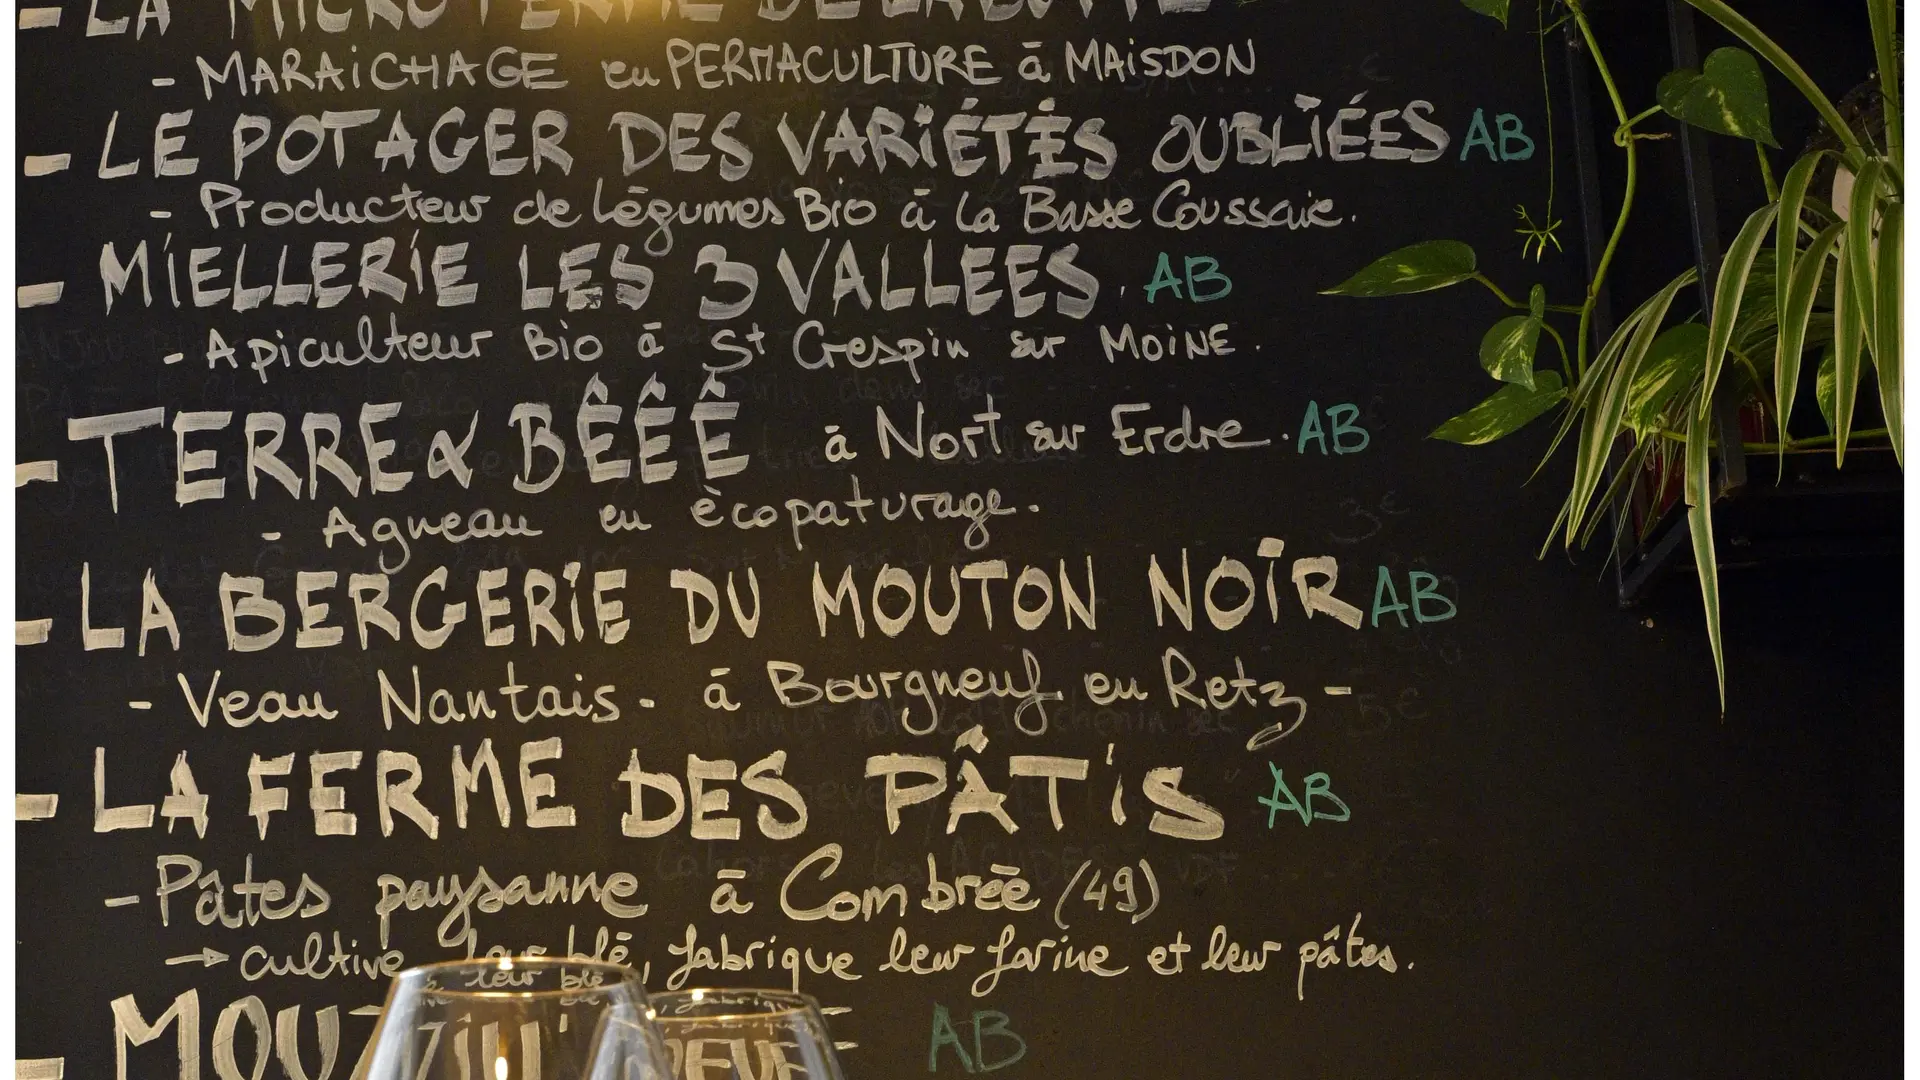 - LA MICRO FERME DE LA BUTTE
- MARAiCHAGE en PERMACULTURE à MAiSDON
- LE POTAGER DES VARiÉTÉS OUBLiÉES AB
- Producteur de légumes Bio à la Basse Coussaie.
- MiELLERiE LES 3 VALLEES. AB
- Apiculteur Bio à St Crespin sur MOiNE.
- TERRE & BÊÊÊ à Nort sur Erdre. AB
- Agneau en écopaturage.
- LA BERGERiE DU MOUTON NOiR AB
- Veau Nantais - à Bourgneuf en Retz -
- LA FERME DES PÂTiS AB
- Pâtes paysanne à Combrée (49)
→ cultive leur blé, fabrique leur farine et leur pâtes.
- AB